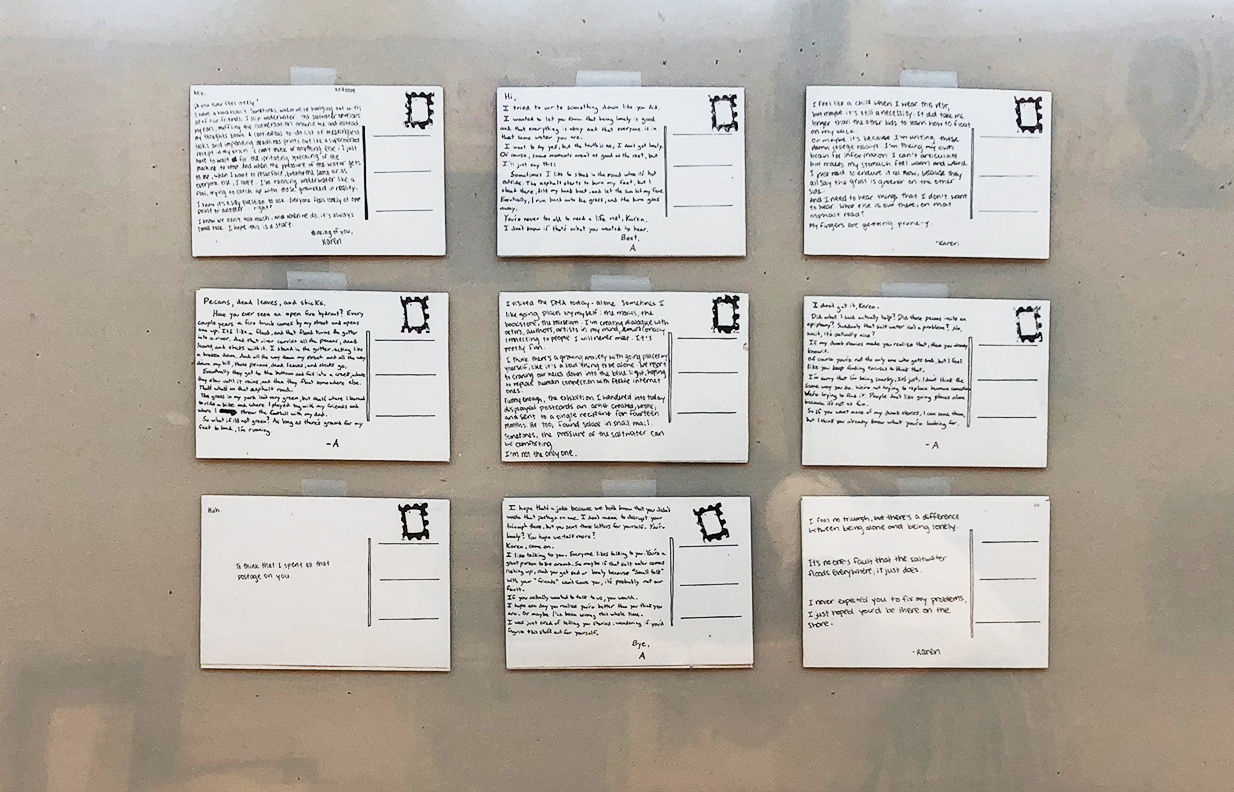 Hey,
Do you ever feel lonely?
of our friends, I slip underwater. The saltwater
my ears, muffling the conversation around me and instead
my thoughts boom. A continual to do list of meaningless
tasks and impending deadlines prints out like a supermarket
receipt in my brain. I can't think of anything else. I just
have to wait for the irritating screeching of the
machine to stop. And when the pressure of the water gets
to me, when I want to resurface, breathe the same air as
everyone else, I can't. I'm running underwater like a
fool, trying to catch up with those grounded in reality.
I know it's a silly question to ask. Everyone feels lonely at one
point or another, right?
I know we don't talk much, and when we do, it's always
small talk. I hope this is a start.
Thinking of you,
Karen
Hi,
I tried to write something down like you did.
I wanted to let you know that being lonely is good
and that everything is okay and that everyone is in
that same water you are.
I want to say yes, but the truth is no, I don't get lonely.
Of course, some moments aren't as good as the rest, but
I'll just say this:
Sometimes I like to stand in the road when it's hot
outside. The asphalt starts to burn my feet, but I
stand there, tilt my head back and let the sun hit my face.
Eventually, I run back onto the grass, and the burn goes
away.
You're never too old to need a life vest, Karen.
I don't know if that's what you wanted to hear.
Best,
A
I feel like a child when I wear this vest,
but maybe it's still a necessity. It did take me
longer than the other kids to learn how to float
on my back.
Or maybe it's because I'm writing these
damn letters
brain for information I can't articulate
but makes my stomach feel warm and weird.
I just need to endure it all now, because they
all say the grass is greener on the other
side.
And I need to hear things that I don't want
to hear. What else is out there, on that
asphalt road?
My fingers are getting prune-y.
-Karen
Pecans, dead leaves, and sticks.
Have you ever seen an open fire hydrant? Every
couple years a fire truck comes by my street and opens
one up. It's like a flood, and that flood turns the gutter
into a river. And that river carries all the pecans, dead
leaves, and sticks with it. I stand in the gutter, acting like
a broken dam. And all the way down my street and all the way
down my hill, those pecans, dead leaves, and sticks go.
Eventually they get to the bottom and fall into a creek, where
they stay until it rains, and then they float somewhere else.
That's what's on that asphalt road.
The grass in my yard isn't very green, but that's where I learned
to ride a bike and where I played tag with my friends and
where I throw the football with my dad.
So what if it's not green? As long as there's ground for my
feet to land, I'm running.
-A
I visited the DMA today - alone. Sometimes I
like going places by myself: the movies, the
bookstore, the museum. I'm creating dialogue with
actors, authors, artists in my mind, emotionally
connecting to people I will never meet. It's
pretty fun.
I think there's a growing anxiety with going places by
yourself, like it's a bad thing to be alone. We resort
to craning our necks down into the blue light, hoping
to replace human connection with feeble internet
ones.
Funny enough, the exhibition I wandered into today
displayed postcards an artist created, wrote,
and sent to a single recipient for fourteen
months. He, too, found solace in snail mail.
Sometimes, the pressure of the saltwater can
be comforting.
I'm not the only one.
I don't get it, Karen.
Did what I said actually help? Did those pecans invite an
epiphany? Suddenly that salt water's not a problem? No,
wait, it's actually nice?
If my dumb stories made you realize that, then you already
knew it.
Of course you're not the only one who gets sad, but I feel
like you keep finding excuses to think that.
I'm sorry that I'm being snarky, it's just, I don't think the
same way you do. We're not trying to replace human connection
We're trying to find it. People don't like going places alone
because it's not as fun.
So if you want more of my dumb stories, I can send them,
but I think you already know what you're looking for.
-A
Huh.
To think that I spent all that
postage on you
I hope that's a joke because we both know that you didn't
waste that postage on me. I don't mean to disrupt your
triumph there, but you sent those letters for yourself. You're
lonely? You hope we talk more?
Karen, come on.
I like talking to you. Everyone likes talking to you. You're a
great person to be around. So maybe if that salt water comes
rising up, and you get sad or lonely because "small talk"
with your "friends" can't save you, it's probably not our
fault.
If you actually wanted to talk to us, you would.
I hope one day you realize you're better than you think you
are. Or maybe I've been wrong this whole time.
I was just tired of telling you stories, wondering if you'd
figure this stuff out for yourself.
Bye,
A
I feel no triumph, but there's a difference
between being alone and being lonely.
It's no one's fault that the saltwater
floods everywhere, it just does.
I never expected you to fix my problems,
I just hoped you'd be there on the
shore.
-Karen